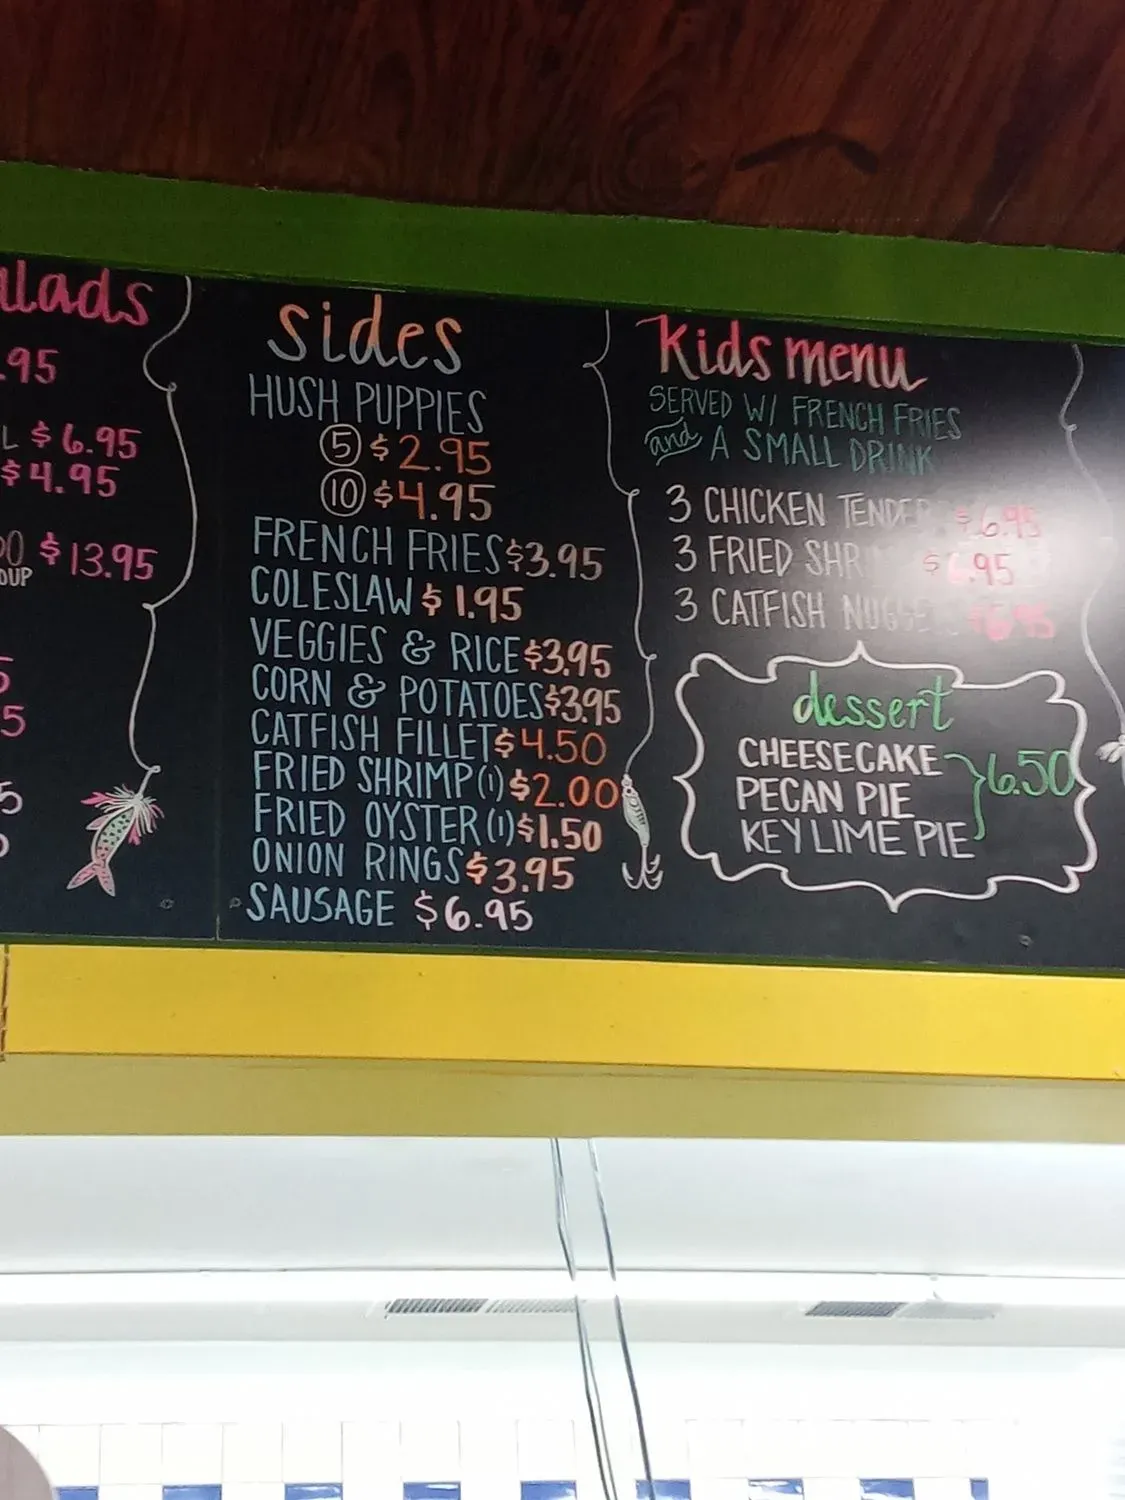 .95
$6.95
$4.95
$13.95
sides
HUSH PUPPIES
5 $2.95
10 $4.95
FRENCH FRIES $3.95
COLESLAW $1.95
VEGGIES & RICE $3.95
CORN & POTATOES $3.95
CATFISH FILLET $4.50
FRIED SHRIMP (1) $2.00
FRIED OYSTER (1) $1.50
ONION RINGS $3.95
SAUSAGE $6.95
Kids menu
SERVED W/ FRENCH FRIES
and A SMALL DRINK
3 CHICKEN $6.95
3 FRIED $6.95
3 CATFISH $6.95
dessert
CHEESECAKE
PECAN PIE 6.50
KEY LIME PIE